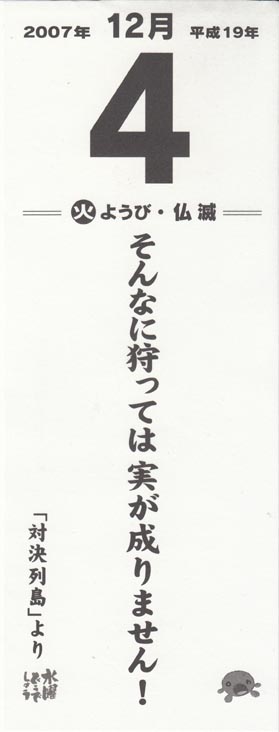 2007年 12月 平成19年
4
火ようび・仏滅
そんなに狩っては実が成りません！
「対決列島」より
水曜どうでしょう